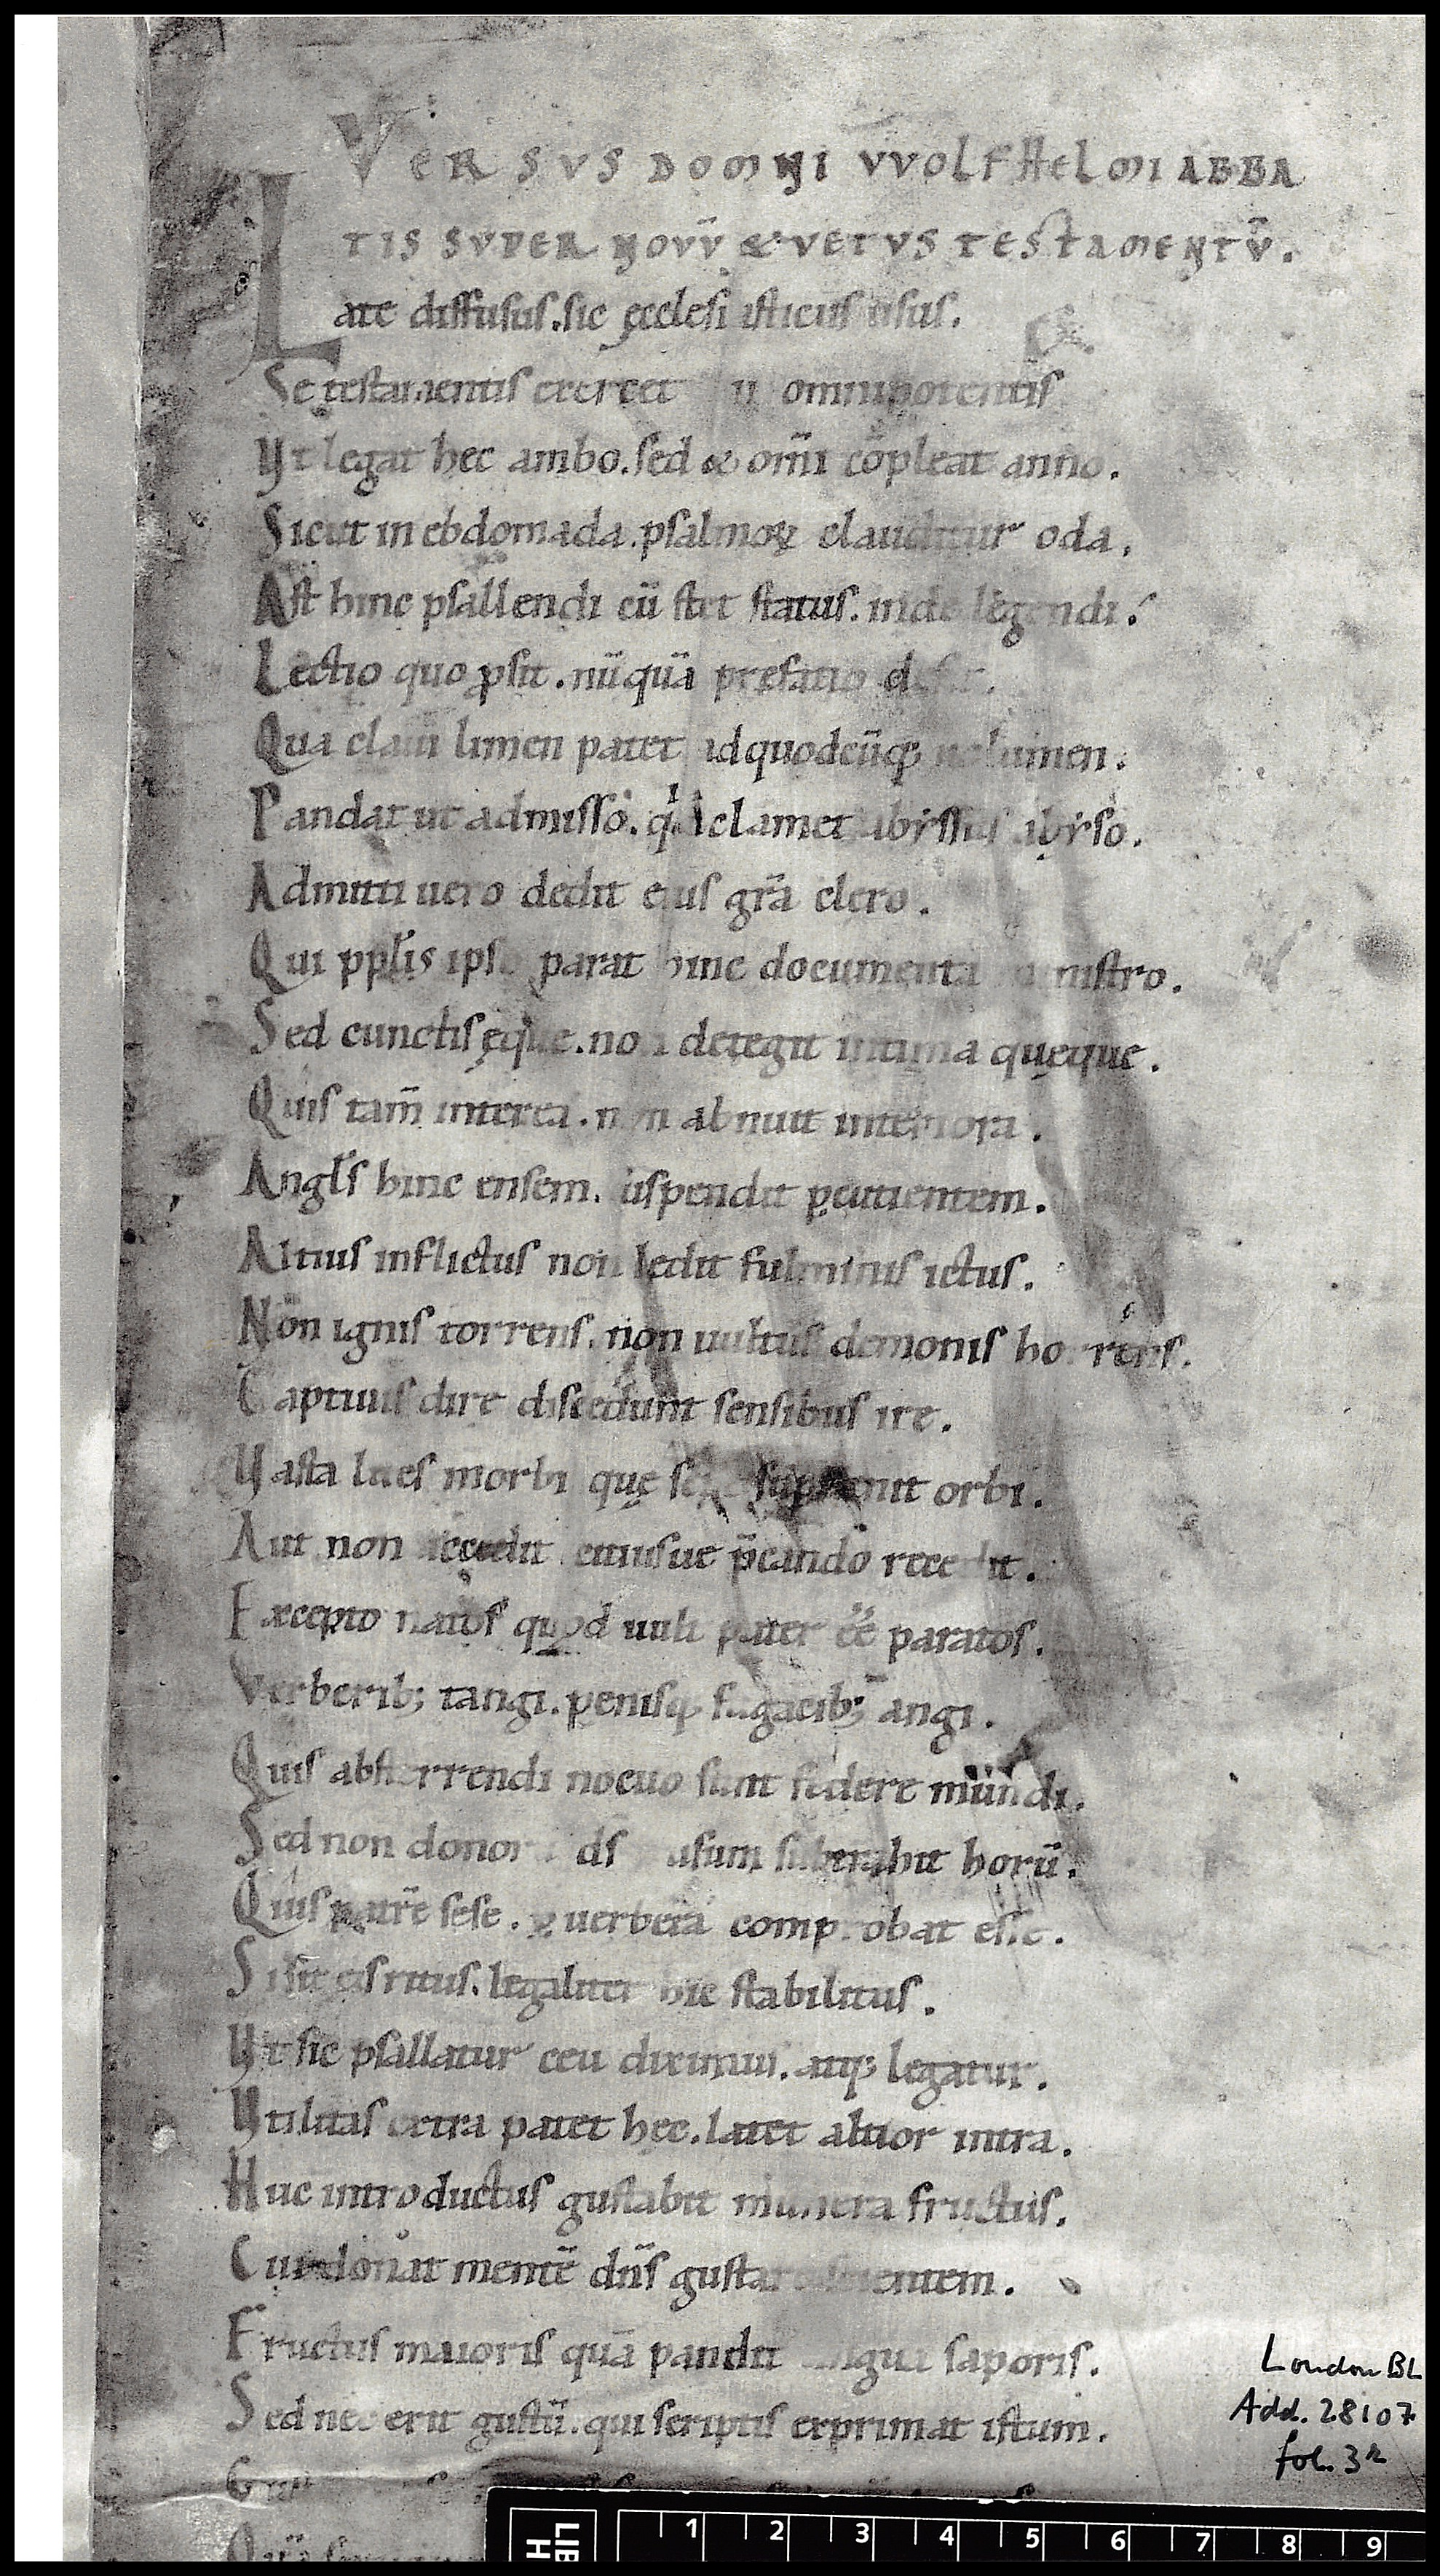 VERSVS DOMNI VVOLFHELMI ABBA
TIS SVPER NOVV̄ & VETVS TESTAMENTV̄.
Late diffusus. sic ęcclesiasticus usus.
Se testamentis exercet omnipotentis
Vt legat hec ambo. sed & om̄i cōpleat anno.
Sicut in ebdomada. psalmoꝝ clauditur oda.
Ast hinc psallendi cū stet status. inde legendi.
Lectio quo ꝓsit. nūquā prefatio
Qua claui limen patet ad quodcūq;
Pandat ut admisso. clamet abyssus abysso.
Admitti uero dedit eius gr̄a clero.
Qui ppl̄is ipse parat hinc documenta
Sed cunctis ęque. non detegit intima quęque.
Quis tam̄ interea. non abnuit interiora.
Angl̄s hinc ensem. suspendit ꝑcutientem.
Altius inflictus non ledit fulminis ictus.
Non ignis torrens. non uultus demonis horrens.
Captiuis dire discedunt sensibus ire.
Vasta lues morbi quę orbi.
Aut non accedit. p̄cando recedit.
Excepto natos quod uult pater ēē paratos.
Verberib; tangi. penisq; fugacib; angi.
Quis absterrendi nocuo sunt federe mundi.
Sed non ds̄ horū.
Quis patrē sese. ꝑ uerbera comprobat esse.
Si sit eis ritus. legaliter hic stabilitus.
Vt sic psallatur ceu diximus. atq; legatur.
Vtilitas extra patet hęc. latet altior intra.
Huc introductus gustabit munera fructus.
Cui donat mentē dn̄s gustare
Fructus maioris quā pandit lingua saporis.
Sed nec erit gustū. qui scriptis exprimat istum.
London BL
Add. 28107
fol. 3r
LIB
H
1 2 3 4 5 6 7 8 9